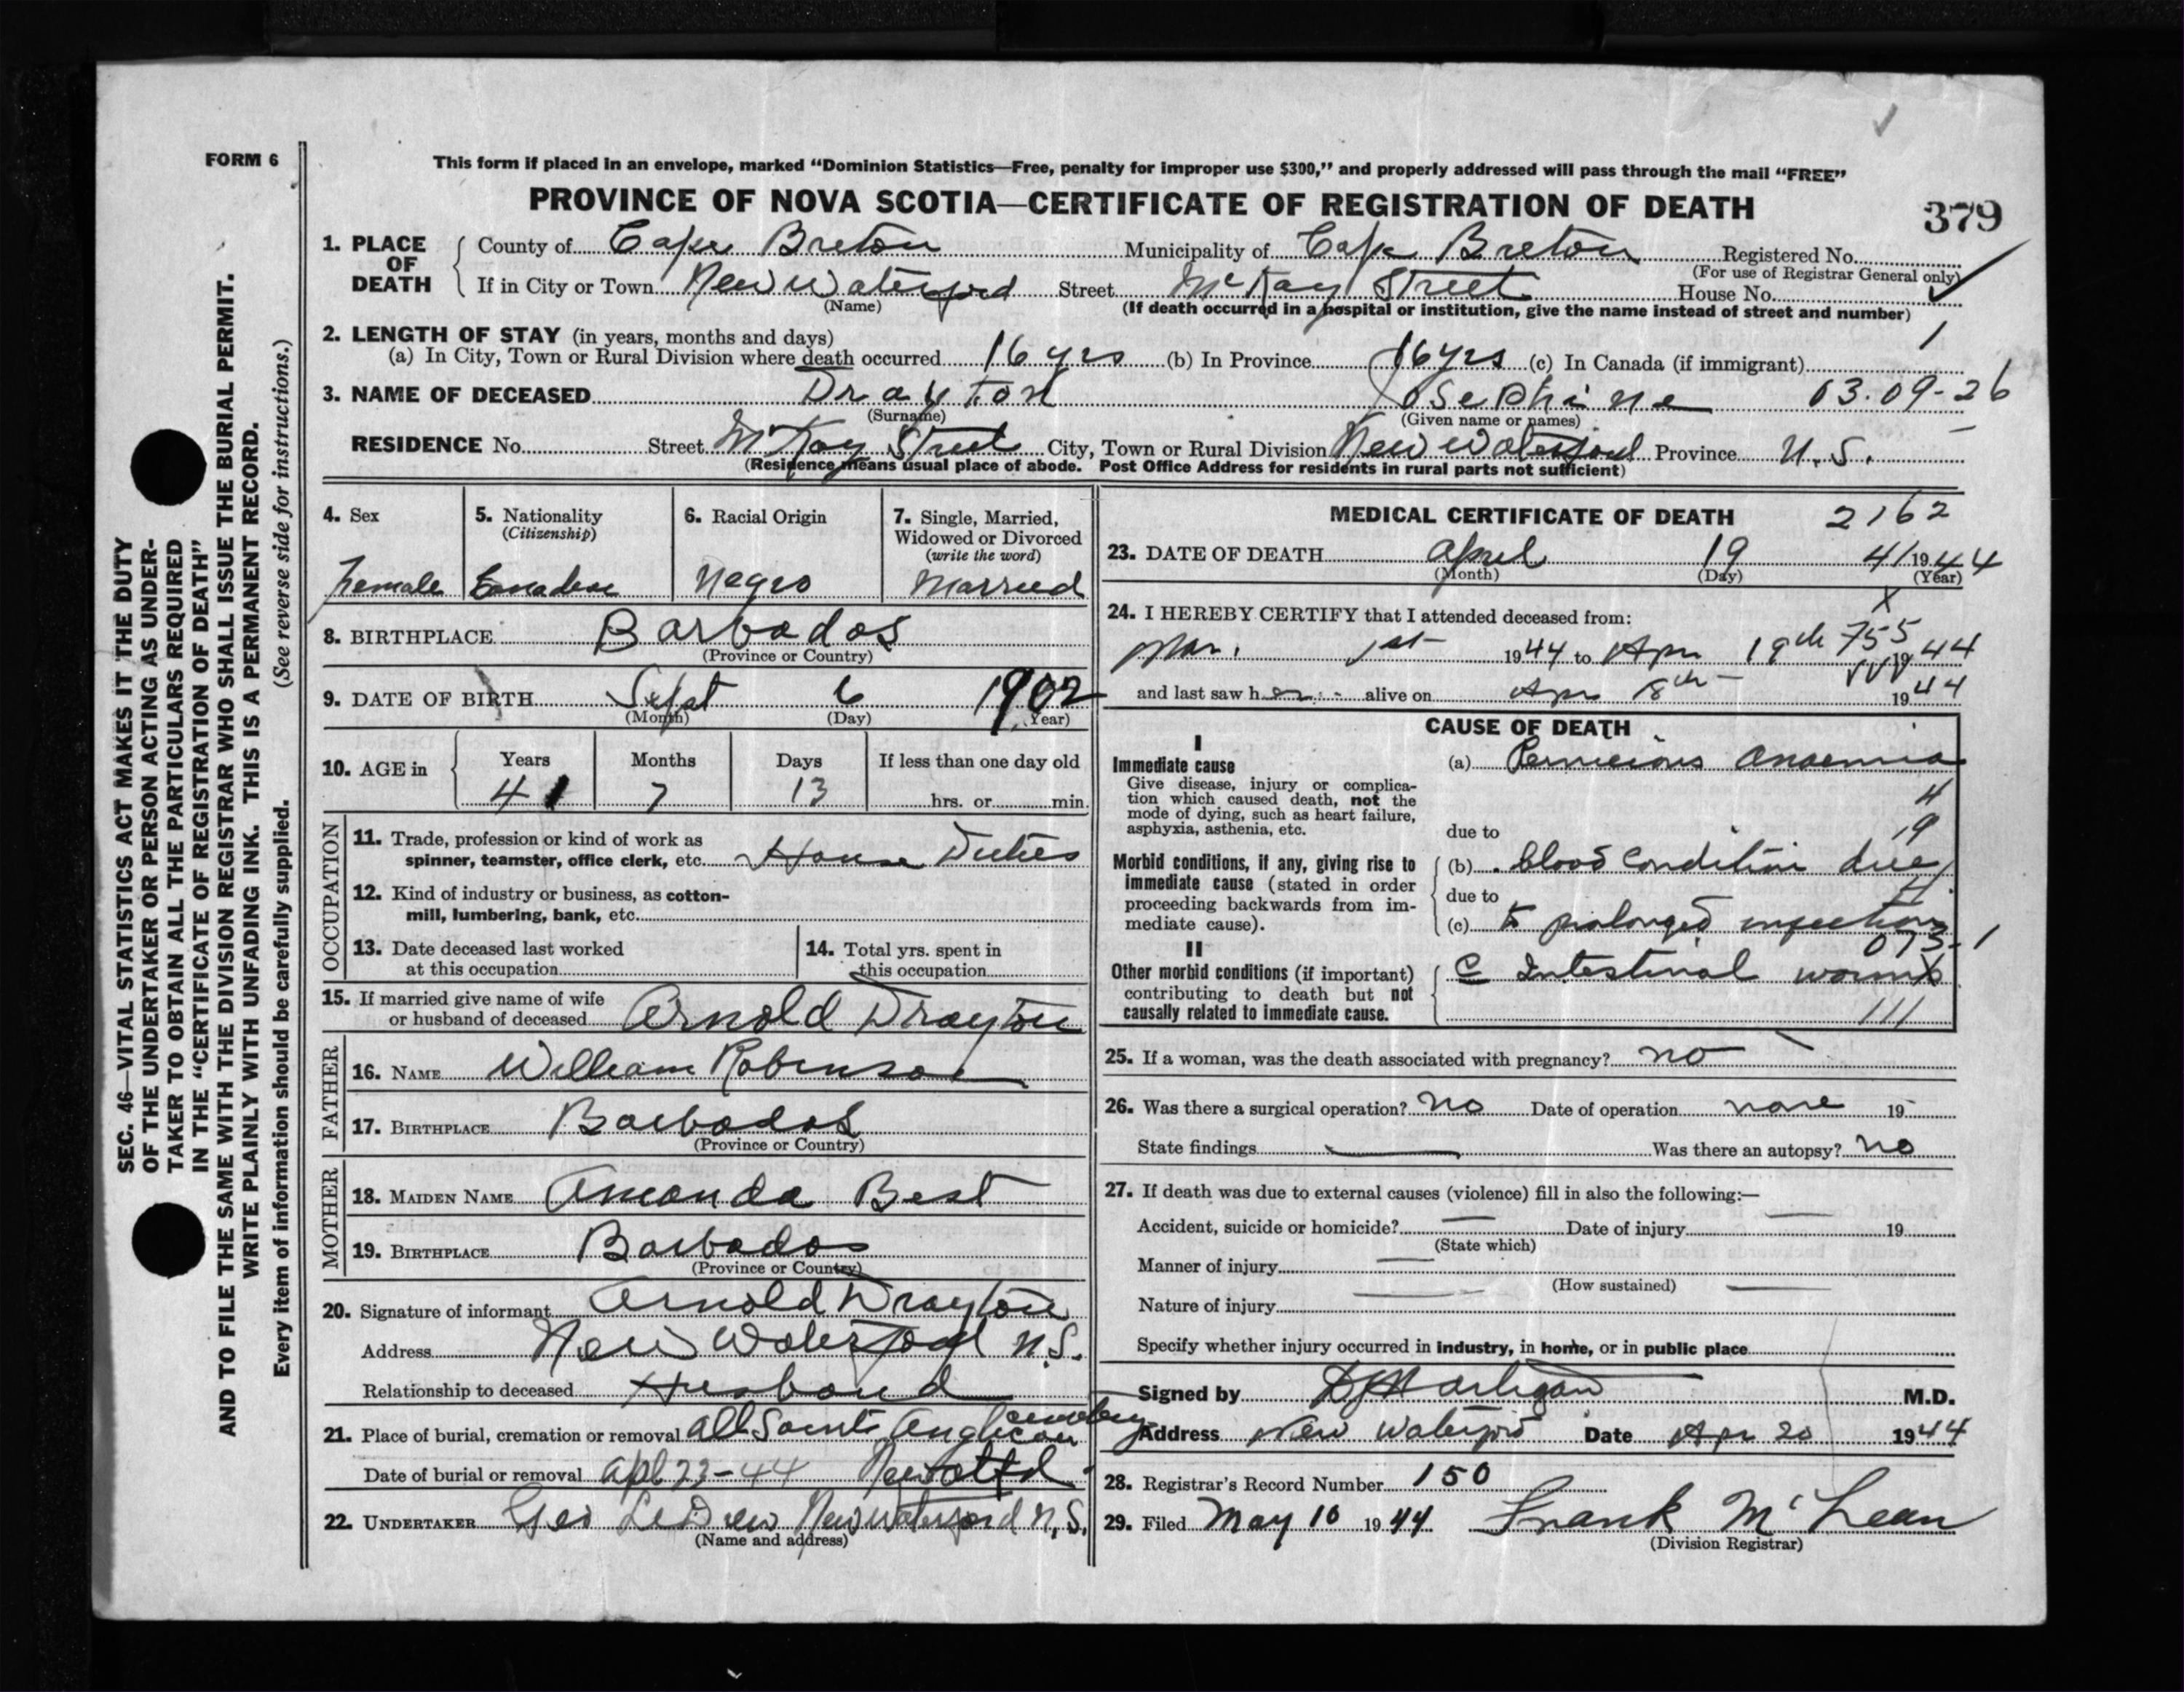 FORM 6
This form if placed in an envelope, marked “Dominion Statistics—Free, penalty for improper use $300,” and properly addressed will pass through the mail “FREE”
PROVINCE OF NOVA SCOTIA—CERTIFICATE OF REGISTRATION OF DEATH
379
1. PLACE OF DEATH
County of Cape Breton Municipality of Cape Breton Registered No.
(For use of Registrar General only)
If in City or Town New Waterford Street McKay Street House No.
(Name) (If death occurred in a hospital or institution, give the name instead of street and number)
2. LENGTH OF STAY (in years, months and days) 1
(a) In City, Town or Rural Division where death occurred 16 yrs (b) In Province 16 yrs (c) In Canada (if immigrant)
3. NAME OF DECEASED Drayton Josephine 03.09-26
(Surname) (Given name or names)
RESIDENCE No. Street McKay Street City, Town or Rural Division New Waterford Province N.S.
(Residence means usual place of abode. Post Office Address for residents in rural parts not sufficient)
4. Sex 5. Nationality (Citizenship) 6. Racial Origin 7. Single, Married, Widowed or Divorced (write the word)
Female Canadian Negro Married
8. BIRTHPLACE Barbados
(Province or Country)
9. DATE OF BIRTH Sept 6 1902
(Month) (Day) (Year)
10. AGE in Years Months Days If less than one day old
41 7 13 hrs. or min.
OCCUPATION
11. Trade, profession or kind of work as spinner, teamster, office clerk, etc. House Duties
12. Kind of industry or business, as cotton-mill, lumbering, bank, etc.
13. Date deceased last worked at this occupation
14. Total yrs. spent in this occupation
15. If married give name of wife or husband of deceased Arnold Drayton
FATHER
16. NAME William Robinson
17. BIRTHPLACE Barbados
(Province or Country)
MOTHER
18. MAIDEN NAME Amanda Best
19. BIRTHPLACE Barbados
(Province or Country)
20. Signature of informant Arnold Drayton
Address New Waterford N.S.
Relationship to deceased Husband
21. Place of burial, cremation or removal All Saints Anglican cemetery
Date of burial or removal Apl 23-44
22. UNDERTAKER Geo LeDrew New Waterford N.S.
(Name and address)
MEDICAL CERTIFICATE OF DEATH 2162
23. DATE OF DEATH April 19 41 1944
(Month) (Day) (Year)
24. I HEREBY CERTIFY that I attended deceased from: X
Mar. 1st 1944 to Apr 19th 755 1944
and last saw her alive on Apr 18th 1944
CAUSE OF DEATH
I
Immediate cause
Give disease, injury or complication which caused death, not the mode of dying, such as heart failure, asphyxia, asthenia, etc.
(a) Pernicious Anaemia
due to
Morbid conditions, if any, giving rise to immediate cause (stated in order proceeding backwards from immediate cause).
(b) blood condition due
due to
(c) to prolonged infection
073-1
II
Other morbid conditions (if important) contributing to death but not causally related to immediate cause.
c Intestinal worms
111
25. If a woman, was the death associated with pregnancy? no
26. Was there a surgical operation? no Date of operation none 19
State findings Was there an autopsy? no
27. If death was due to external causes (violence) fill in also the following:—
Accident, suicide or homicide? Date of injury 19
(State which)
Manner of injury
(How sustained)
Nature of injury
Specify whether injury occurred in industry, in home, or in public place
Signed by M.D.
Address New Waterford Date Apr 20 1944
28. Registrar's Record Number 150
29. Filed May 10 1944 Frank McLean
(Division Registrar)
SEC. 46—VITAL STATISTICS ACT MAKES IT THE DUTY
OF THE UNDERTAKER OR PERSON ACTING AS UNDER-
TAKER TO OBTAIN ALL THE PARTICULARS REQUIRED
IN THE “CERTIFICATE OF REGISTRATION OF DEATH”
AND TO FILE THE SAME WITH THE DIVISION REGISTRAR WHO SHALL ISSUE THE BURIAL PERMIT.
WRITE PLAINLY WITH UNFADING INK. THIS IS A PERMANENT RECORD.
Every item of information should be carefully supplied. (See reverse side for instructions.)